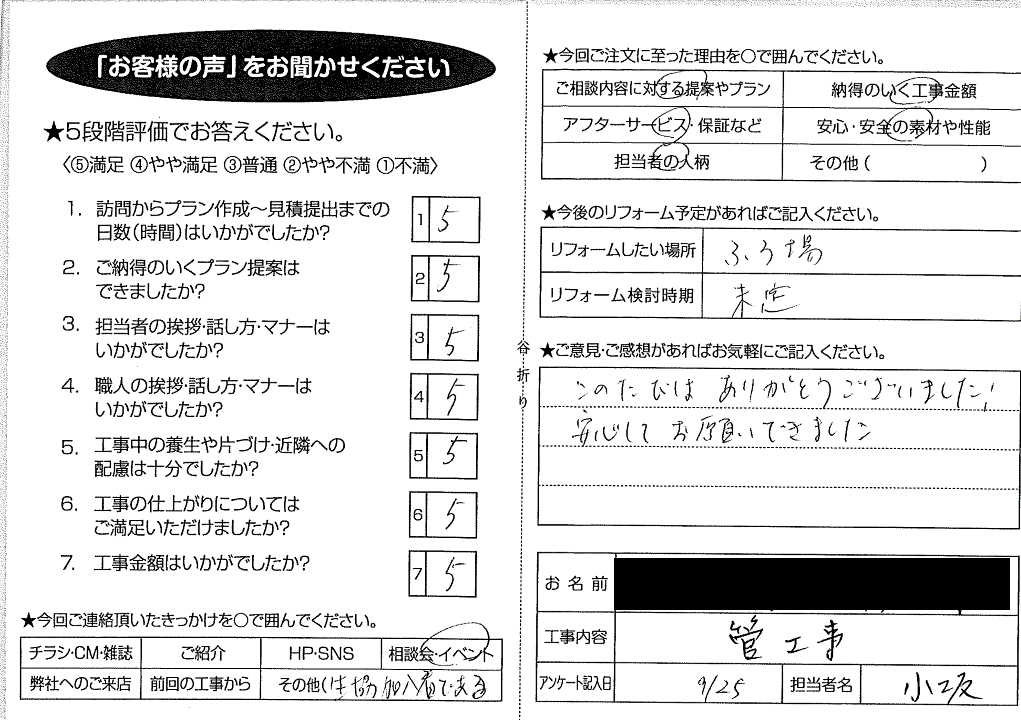 「お客様の声」をお聞かせください
★5段階評価でお答えください。
〈⑤満足 ④やや満足 ③普通 ②やや不満 ①不満〉
1. 訪問からプラン作成〜見積提出までの
日数(時間)はいかがでしたか?
1 5
2. ご納得のいくプラン提案は
できましたか?
2 5
3. 担当者の挨拶・話し方・マナーは
いかがでしたか?
3 5
4. 職人の挨拶・話し方・マナーは
いかがでしたか?
4 5
5. 工事中の養生や片づけ・近隣への
配慮は十分でしたか?
5 5
6. 工事の仕上がりについては
ご満足いただけましたか?
6 5
7. 工事金額はいかがでしたか?
7 5
★今回ご連絡頂いたきっかけを〇で囲んでください。
チラシ・CM・雑誌 ご紹介 HP・SNS 相談会・イベント
弊社へのご来店 前回の工事から その他(生協加入者である
谷折り
★今回ご注文に至った理由を〇で囲んでください。
ご相談内容に対する提案やプラン 納得のいく工事金額
アフターサービス・保証など 安心・安全の素材や性能
担当者の人柄 その他( )
★今後のリフォーム予定があればご記入ください。
リフォームしたい場所 ふろ場
リフォーム検討時期 未定
★ご意見・ご感想があればお気軽にご記入ください。
このたびは ありがとうございました!
安心して お願いできました
お名前
工事内容 管工事
アンケート記入日 9/25 担当者名 小坂